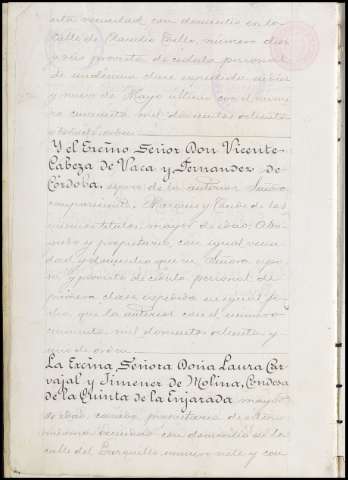 esta vecindad con domicilio en la
calle de Claudio Coello, número diez
y seis provista de cédula personal
de undécima clase expedida diez
y nueve de Mayo último con el núme
ro cincuenta mil doscientos ochenta
Y el Excmo Señor Don Vicente
Cabeza de Vaca y Fernandez de
Córdoba, esposo de la anterior Señora
compareciente, Marques y Conde de los
mismos titulos, mayor de edad,
y propietario, con igual vecin
dad y domicilio que su Señora espo
sa y provisto de cédula personal de
primera clase expedida en igual fe
cha que la anterior con el número
cincuenta mil doscientos ochenta y
uno de orden.
La Excma Señora Doña Laura Car
vajal y Jimenez de Molina, Condesa
de la Quinta de la Enjarada mayor
de edad, casada, propietaria de esta
misma vecindad con domicilio en la
calle del numero siete y con